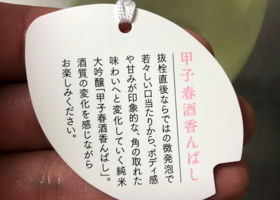 甲子春酒香んばし
抜栓直後ならではの微発泡で
若々しい口当たりから、ボディ感
や甘みが印象的な、角の取れた
味わいへと変化していく純米
大吟醸「甲子春酒香んばし」。
酒質の変化を感じながら
お楽しみください。